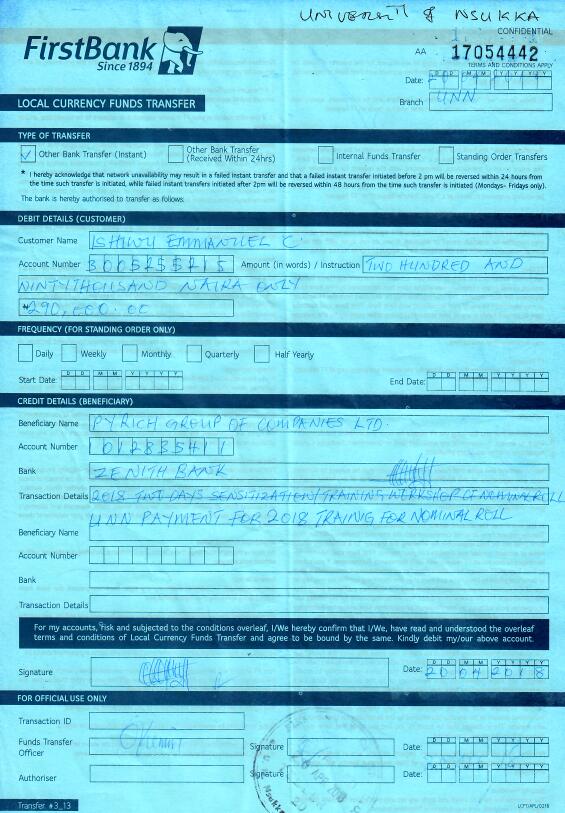 UNIVERSITY OF NSUKKA
CONFIDENTIAL
FirstBank
Since 1894
AA 17054442
TERMS AND CONDITIONS APPLY
Date: D D M M Y Y Y Y
LOCAL CURRENCY FUNDS TRANSFER
Branch UNN
TYPE OF TRANSFER
Other Bank Transfer (Instant)
Other Bank Transfer (Received Within 24hrs)
Internal Funds Transfer
Standing Order Transfers
* I hereby acknowledge that network unavailability may result in a failed instant transfer and that a failed instant transfer initiated before 2 pm will be reversed within 24 hours from
the time such transfer is initiated, while failed instant transfers initiated after 2pm will be reversed within 48 hours from the time such transfer is initiated (Mondays- Fridays only).
The bank is hereby authorised to transfer as follows:
DEBIT DETAILS (CUSTOMER)
Customer Name ISHIWU EMMANUEL C.
Account Number 3005255215 Amount (in words) / Instruction TWO HUNDRED AND
NINTYTHOUSAND NAIRA ONLY
₦290,000.00
FREQUENCY (FOR STANDING ORDER ONLY)
Daily Weekly Monthly Quarterly Half Yearly
Start Date: D D M M Y Y Y Y End Date: D D M M Y Y Y Y
CREDIT DETAILS (BENEFICIARY)
Beneficiary Name PYRICH GROUP OF COMPANIES LTD.
Account Number 1012835411
Bank ZENITH BANK
Transaction Details 2018 TWO DAYS SENSITIZATION/TRAINING WORKSHOP OF NOMINAL ROLL
UNN PAYMENT FOR 2018 TRAINIG FOR NOMINAL ROLL
Beneficiary Name
Account Number
Bank
Transaction Details
For my accounts, risk and subjected to the conditions overleaf, I/We hereby confirm that I/We, have read and understood the overleaf
terms and conditions of Local Currency Funds Transfer and agree to be bound by the same. Kindly debit my/our above account.
Signature Date: D D M M Y Y Y Y 20 04 2018
FOR OFFICIAL USE ONLY
Transaction ID
Funds Transfer Officer Signature Date: D D M M Y Y Y Y
Authoriser Signature Date: D D M M Y Y Y Y
APR 2018
Nsukka
Transfer #3_13